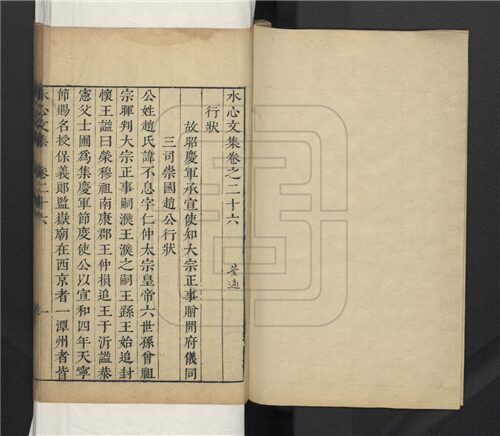 水心文集卷之二十六
葉適
行狀
故昭慶軍承宣使知大宗正事贈開府儀同
三司崇國趙公行狀
公姓趙氏諱不息字仁仲太宗皇帝六世孫曾祖
宗暉判大宗正事嗣濮王濮之嗣王孫王始追封
懷王諡曰榮穆祖南康郡王仲損追王于沂諡恭
憲父士圃爲集慶軍節度使公以宣和四年天寧
節賜名授保義郎監嶽廟在西京者一潭州者皆
水心文集 卷二十六